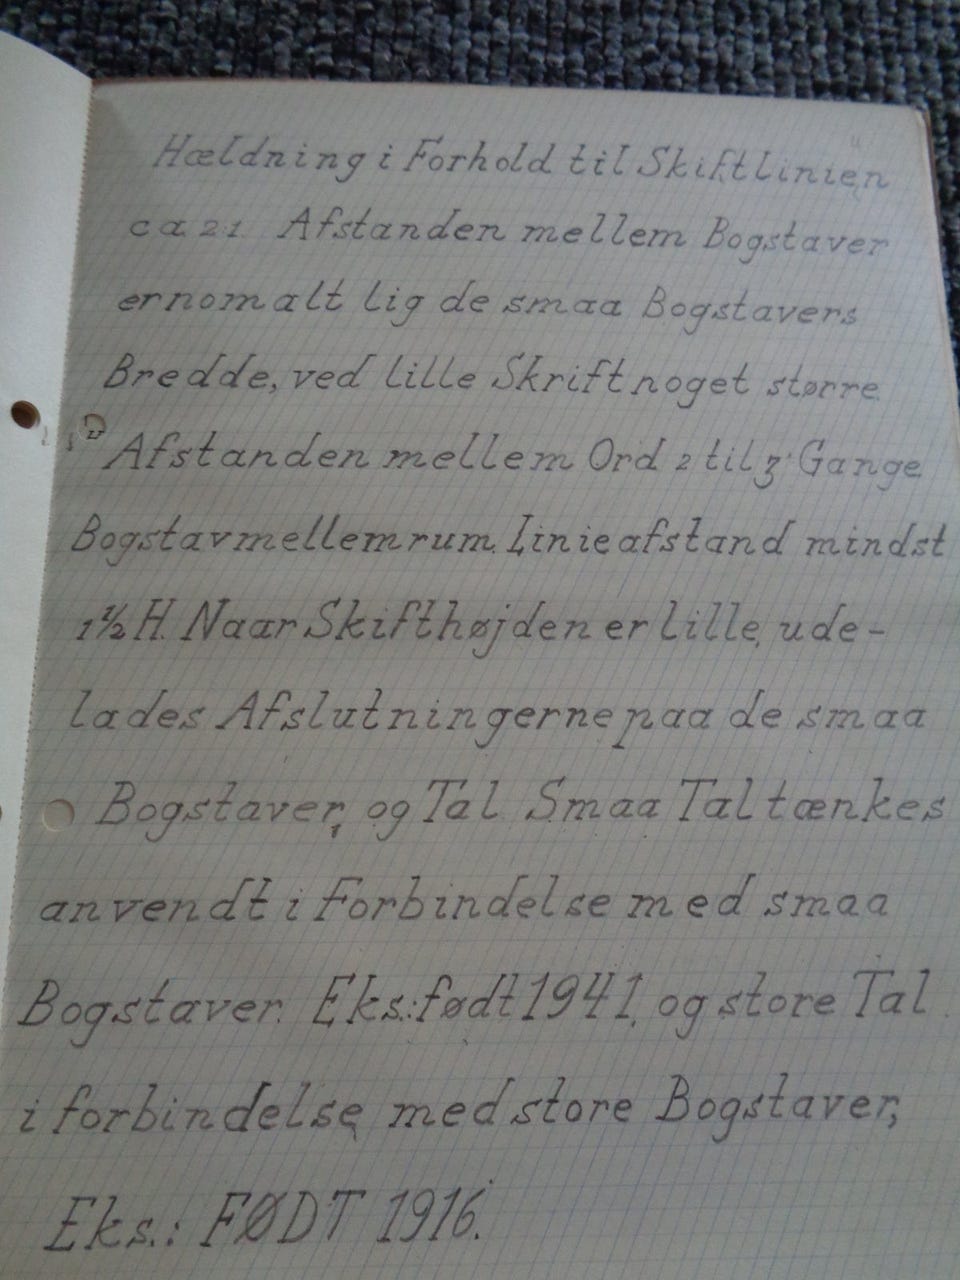 Hældning i Forhold til Skiftlinien
ca 2:1 Afstanden mellem Bogstaver
er nomalt lig de smaa Bogstavers
Bredde, ved lille Skrift noget større.
Afstanden mellem Ord 2 til 3 Gange
Bogstavmellemrum. Linieafstand mindst
1½ H. Naar Skifthøjden er lille, ude-
lades Afslutningerne paa de smaa
Bogstaver, og Tal. Smaa Tal tænkes
anvendt i Forbindelse med smaa
Bogstaver. Eks.: født 1941, og store Tal
i forbindelse med store Bogstaver,
Eks.: FØDT 1916.